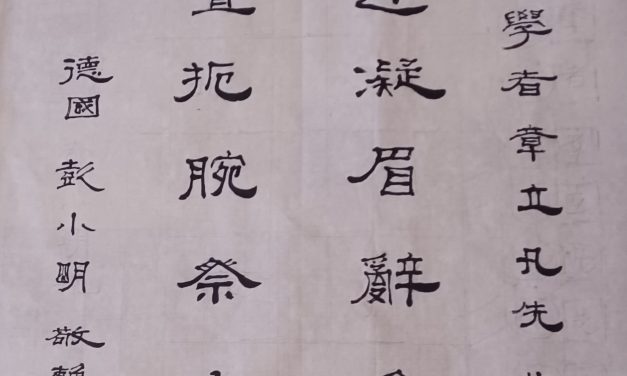 學者章立凡先
凝眉辭
扼腕祭
德國彭小明敬輓